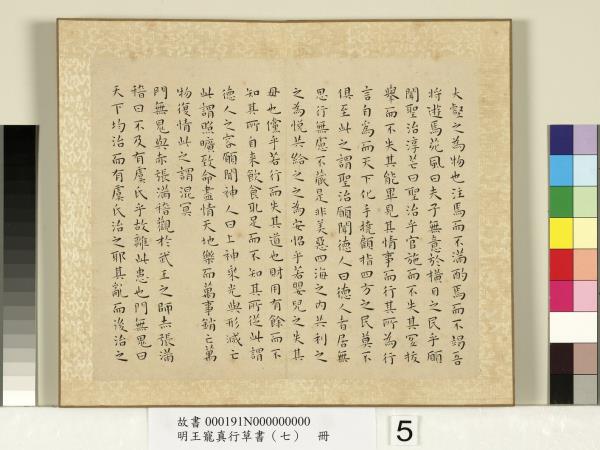 大壑之為物也注焉而不滿酌焉而不竭吾
將遊焉苑風曰夫子無意於橫目之民乎願
聞聖治淳芒曰聖治乎官施而不失其宜拔
舉而不失其能畢見其情事而行其所為行
言自為而天下化手撓顧指四方之民莫不
俱至此之謂聖治願聞德人曰德人者居無
思行無慮不藏是非美惡四海之內共利之
之為悅共給之之為安怊乎若嬰兒之失其
母也儻乎若行而失其道也財用有餘而不
知其所自來飲食取足而不知其所從此謂
德人之容願聞神人曰上神乘光與形滅亡
此謂照曠致命盡情天地樂而萬事銷亡萬
物復情此之謂混冥
門無鬼與赤張滿稽觀於武王之師赤張滿
稽曰不及有虞氏乎故離此患也門無鬼曰
天下均治而有虞氏治之耶其亂而後治之
故書 000191N000000000
明王寵真行草書(七) 冊
5